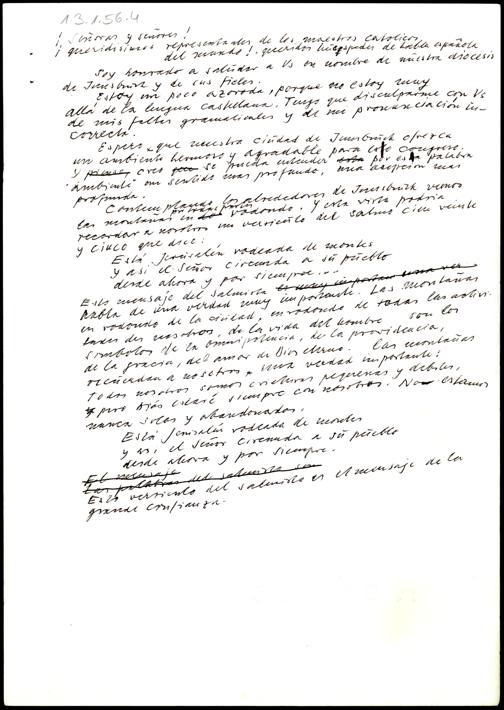 13.1.56.4
¡ Señoras y señores!
¡ queridísimos representantes de los maestros católicos
del mundo!, queridos huéspedes de habla española
Soy honrado a saludar a Vs en nombre de nuestra diócesis
de Innsbruck y de sus fieles.
Estoy un poco azorado, porque no estoy muy
allá de la lengua castellana. Tengo que disculparme con Vs
de mis faltes gramaticales y de mi pronunciación in-
correcta.
Espero, que nuestra ciudad de Innsbruck ofrerca
un ambiente hermoso y agradable para este congreso.
y pienso, creo que se pueda entender esta por esta palabra
"ambiente" un sentido mas profundo, una acepción mas
profunda.
Contemplando los alrededores de Innsbruck vemos
las montañas en redondo, y esta vista podría
recordar a nosotros un versículo del Salmo cien veinte
y cinco que dice:
Está Jerusalén rodeada de montes
y así el Señor circunda a su pueblo
desde ahora y por siempre...
Este mensaje del salmista es muy importan una ver
habla de una verdad muy importante. Las montañas
en redondo de la ciudad, en redondo de todas las activi-
tades des nosotros, de la vida del hombre son los
símbolos de la omnipotencia, de la providencia,
de la gracia, del amor de Dios eterno. Las montañas
recuerdan a nosotros una verdad importante:
Todos nosotros somos criaturas pequenas y debiles,
y pero Dios estaré siempre con nosotros. No estamos
nunca solos y abandonados.
Está Jerusalén rodeada de montes
y así, el Señor circunda a su pueblo
desde ahora y por siempre.
El mensaje
Las palabras del salmista son
Este versículo del salmista es el mensaje de la
grande confianza.